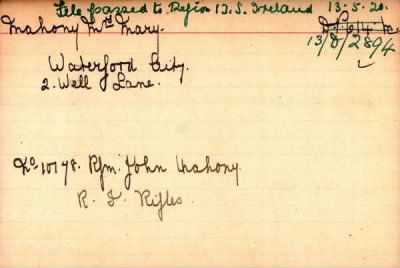 File passed to Region 12.S. Ireland 13-5-20.
Mahony Mrs Mary.
13/D/2894
Waterford City.
2. Well Lane.
No 10178. Rfm. John Mahony.
R. I. Rifles.